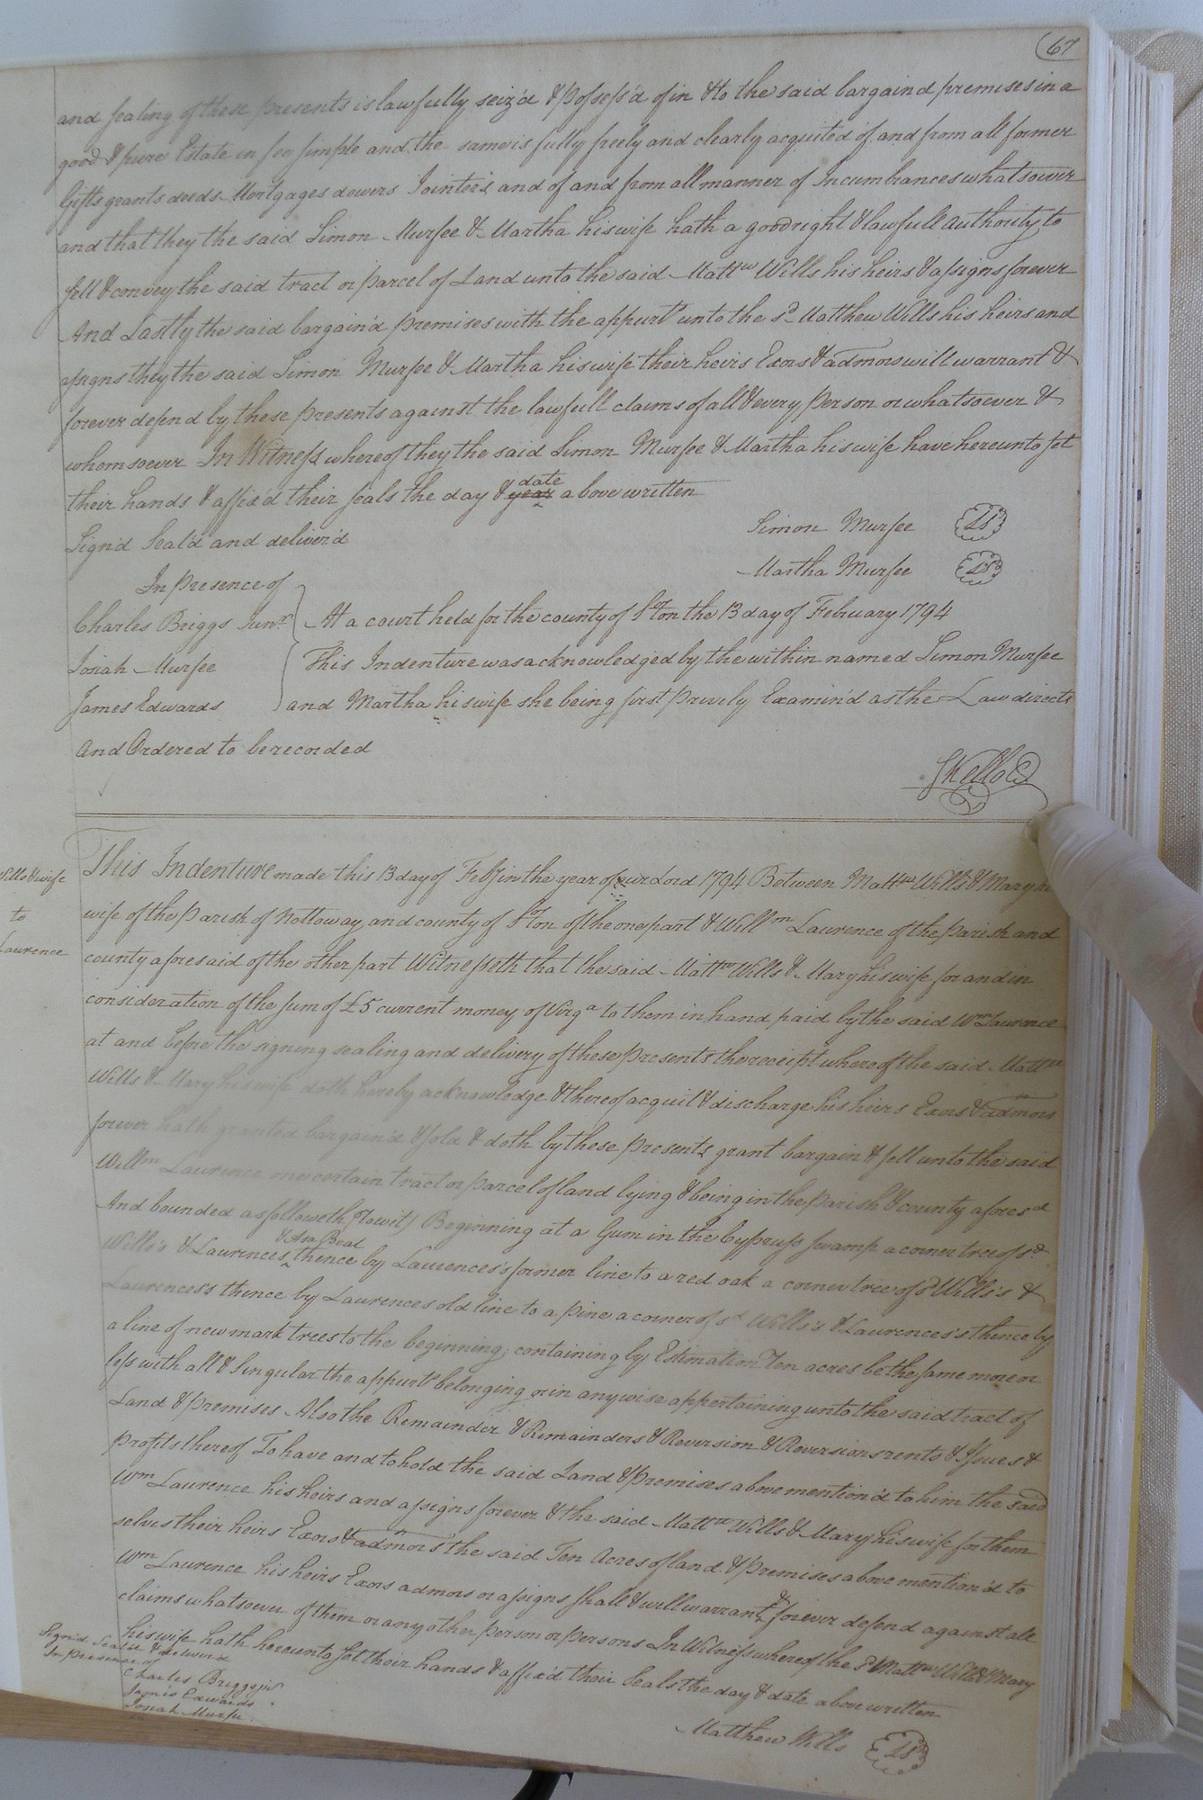 67
and sealing of these presents is lawfully seiz'd & possess'd of in & to the said bargaind premises in a
good & pure Estate in fee simple and the same is fully freely and clearly acquited of and from all former
Gifts grants deeds Mortgages dowers Jointers and of and from all manner of Incumbrances whatsoever
and that they the said Simon Murfee & Martha his wife hath a good right & lawfull authority to
sell & convey the said tract or parcel of Land unto the said Mattw Wills his heirs & assigns forever
And Lastly the said bargain'd premises with the appurts unto the sd Matthew Wills his heirs and
assigns they the said Simon Murfee & Martha his wife their heirs Exors & admors will warrant &
forever defend by these presents against the lawfull claims of all & every person or whatsoever &
whomsoever In Witness whereof they the said Simon Murfee & Martha his wife have hereunto set
their hands & affix'd their seals the day & year date above written
Sign'd Seal'd and deliver'd
Simon Murfee LS
In presence of
Martha Murfee LS
Charles Briggs Junr
At a court held for the county of Sºton the 13 day of February 1794
Josiah Murfee
This Indenture was acknowledged by the within named Simon Murfee
James Edwards
and Martha his wife she being first privily Examin'd as the Law directs
And Ordered to be recorded
SKello C
Wills & wife
to
Laurence
This Indenture made this 13 day of Feby in the year of our Lord 1794 Between Mattw Wills & Mary his
wife of the Parish of Nottoway and county of Sºton of the one part & Willm Laurence of the parish and
county aforesaid of the other part Witnesseth that the said Mattw Wills & Mary his wife for and in
consideration of the sum of £5 current money of Virga to them in hand paid by the said Wm Laurence
at and before the signing sealing and delivery of these presents the receipt whereof the said Mattw
Wills & Mary his wife doth hereby acknowledge & thereof acquit & discharge his heirs Exors & admors
forever hath granted bargain'd & sold & doth by these presents grant bargain & sell unto the said
Willm Laurence one certain tract or parcel of land lying & being in the parish & county aforesd
And bounded as followeth (towit) Beginning at a Gum in the Cypruss swamp a corner tree of sd
Wills's & Laurences & Asa Beal thence by Laurences's former line to a red oak a corner tree of sd Wills's &
Laurences's thence by Laurences old line to a pine a corner of sd Wills's & Laurences's thence by
a line of new mark trees to the beginning, containing by Estimation Ten acres be the same more or
less with all & Singular the appurts belonging or in anywise appertaining unto the said tract of
Land & premises Also the Remainder & Remainders & Reversion & Reversions rents & Issues &
profits thereof To have and to hold the said Land & premises above mention'd to him the said
Wm Laurence his heirs and assigns forever & the said Mattw Wills & Mary his wife for them
selves their heirs Exors & admors the said Ten Acres of land & premises above mention'd to
Wm Laurence his heirs Exors admors or assigns shall & will warrant & forever defend against all
claims whatsoever of them or any other person or persons In Witness whereof the sd Mattw Wills & Mary
his wife hath hereunto set their hands & affix'd their Seals the day & date above written
Sign'd Seal'd & deliver'd
In presence of
Charles Briggs jur
James Edwards
Josiah Murfee
Matthew Wills LS